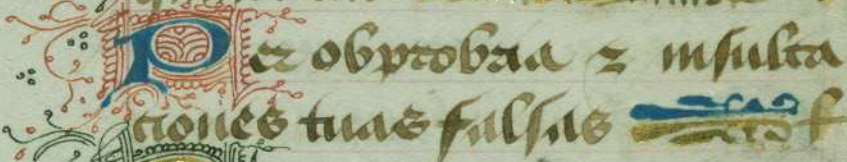 Per obprobria ⁊ insulta
ciones tuas falsas